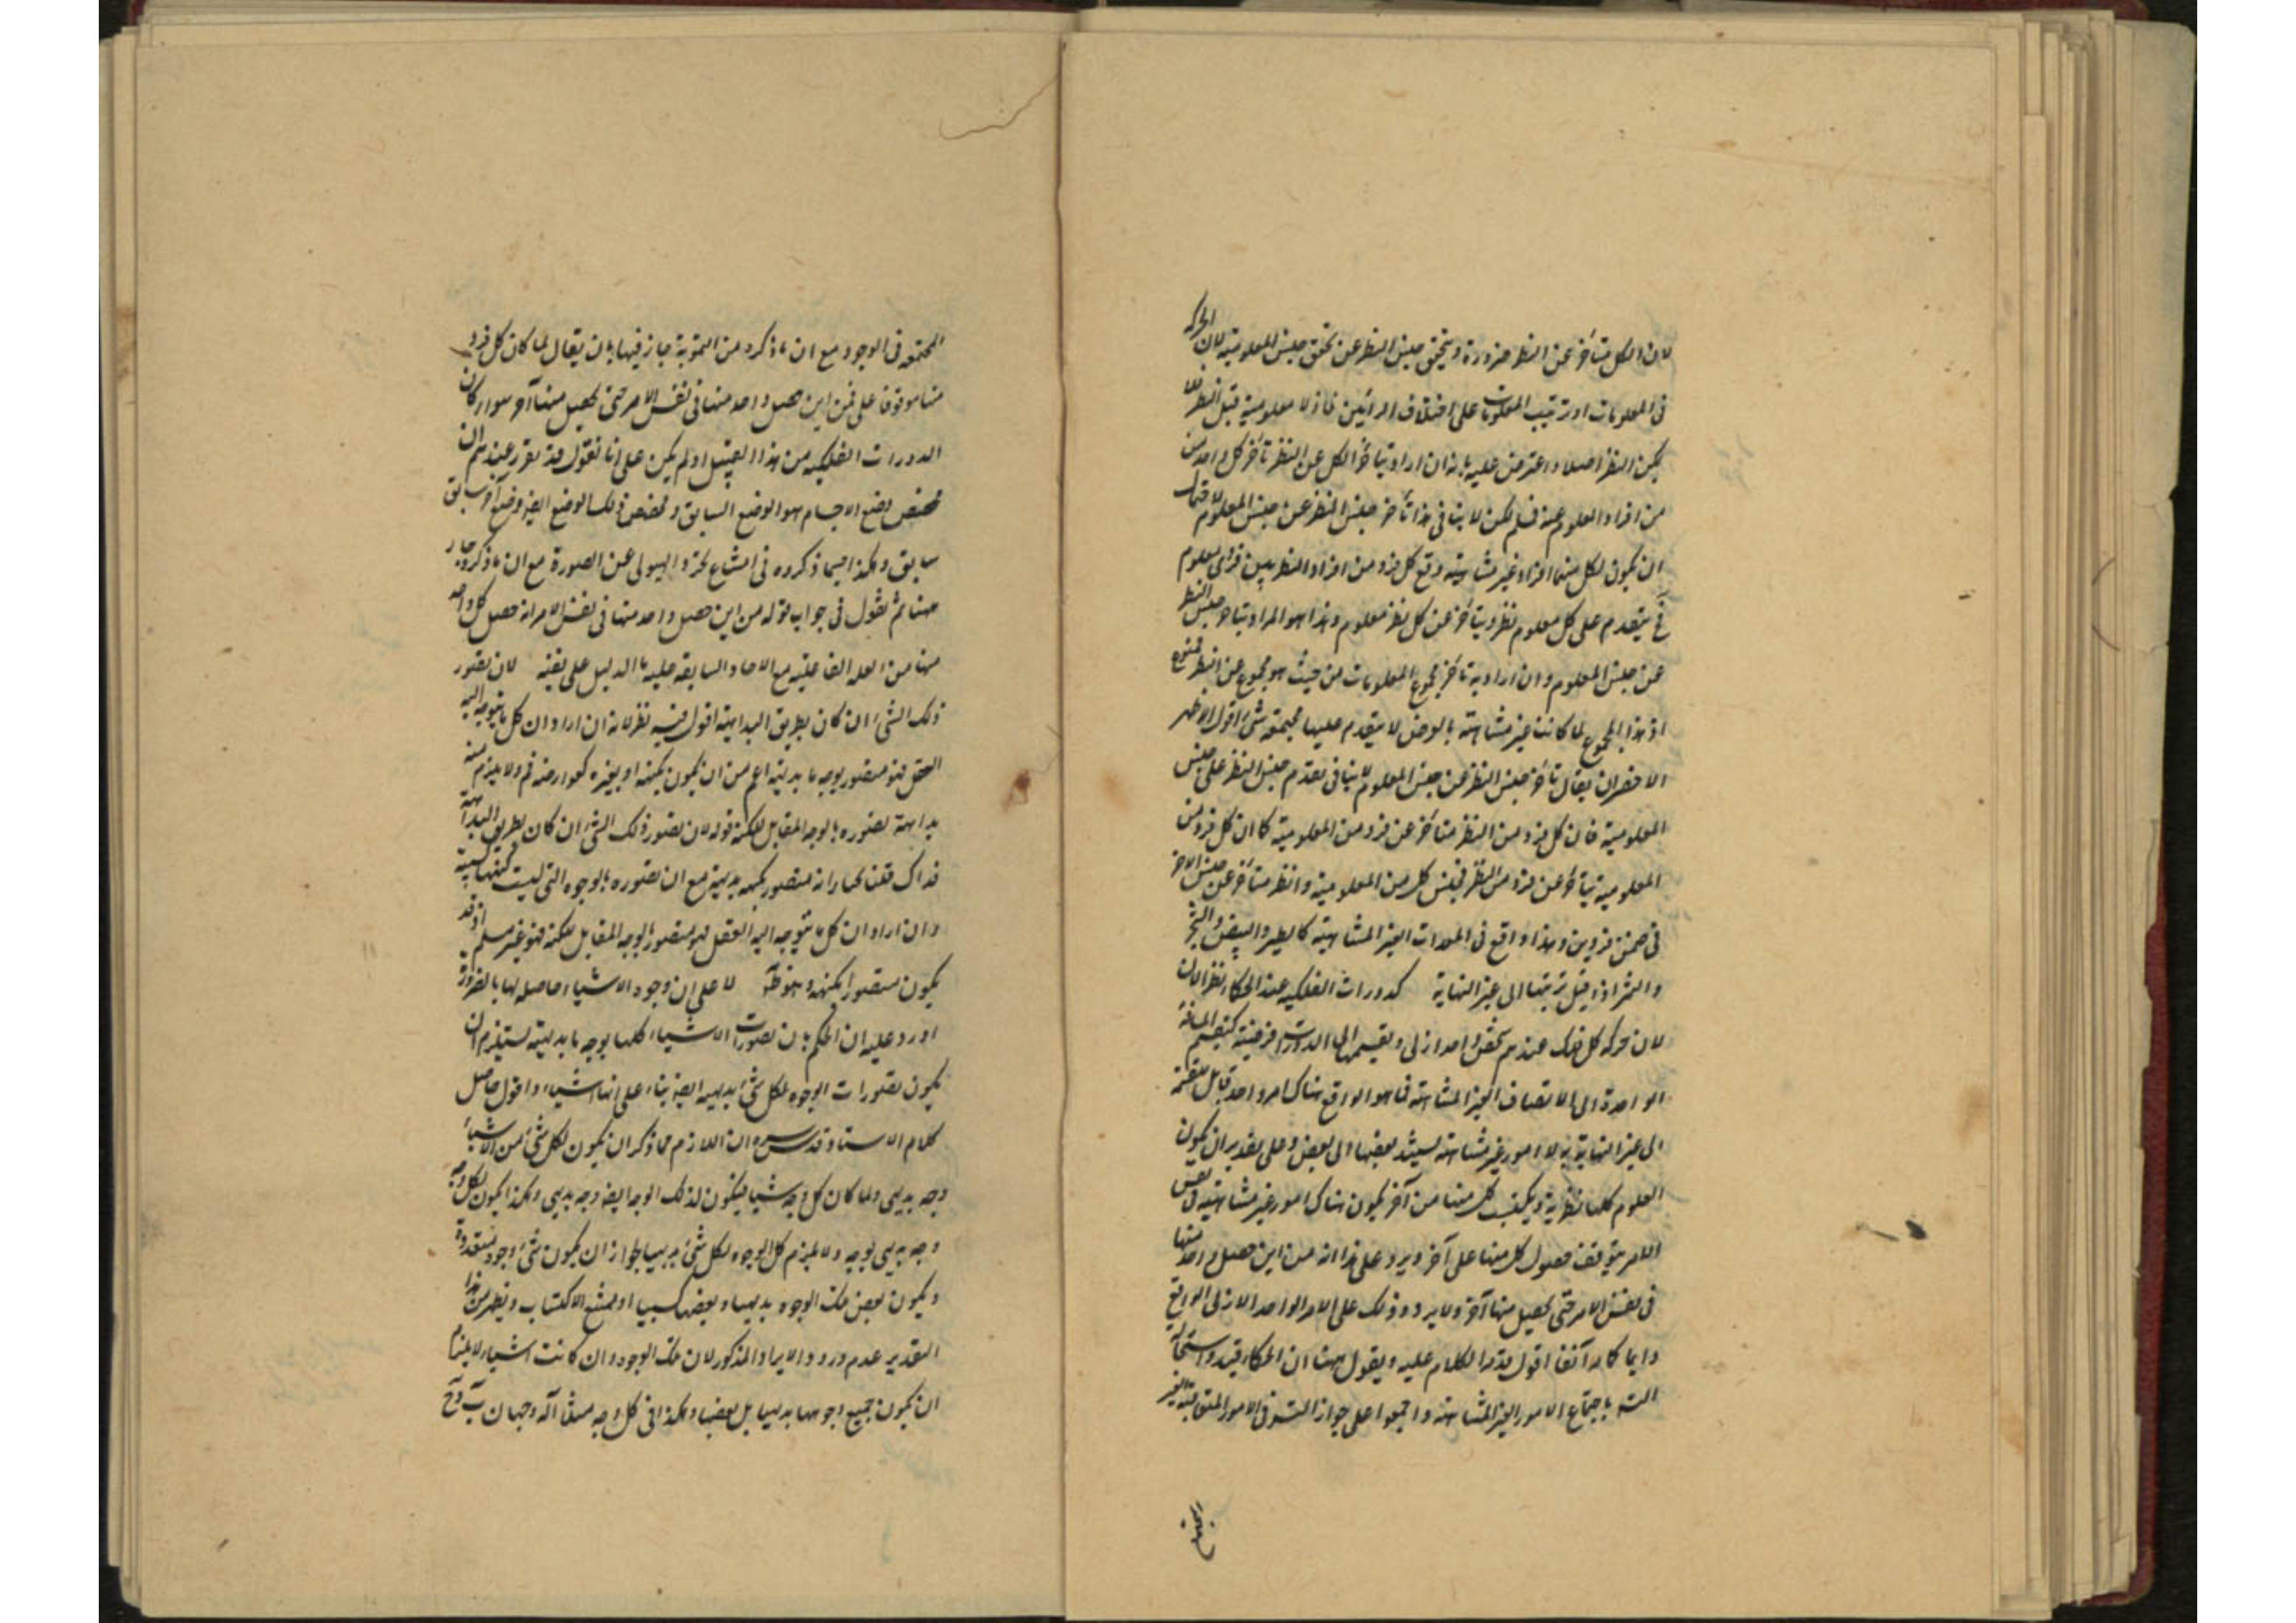 لان الكل متأخر عن النظر ضرورة ويتحقق جنس النظر عن تحقق جنس المعلومية لان الحركة
فى المعلومات او ترتيب المعلومات على اختلاف الرائين فاذ لا معلومية قبل النظر لا
يمكن النظر اصلا واعترض عليه بانه ان اراد بتأخر الكل عن النظر تأخر كل واحد من
من افراد المعلوم عنه فمسلم لكن لا ينافى هذا تأخر جنس النظر عن جنس المعلوم
ان يكون لكل منهما افراد غير متناهية وقع كل فرد من افراد النظر بين فردى معلوم
فيتقدم على كل معلوم نظر ويتأخر عن كل نظر معلوم وهذا هو المراد بتأخر جنس النظر
عن جنس المعلوم وان اراد به تأخر مجموع المعلومات من حيث هو مجموع عن النظر فممنوع
اذ هذا المجموع لما كانت غير متناهية بالفرض لا يتقدم عليها بجميعه شئ اقول الاظهر
الاخصر ان يقال تأخر جنس النظر عن جنس المعلوم لا ينافى تقدم جنس النظر على جنس
المعلومية فان كل فرد من النظر متأخر عن فرد من المعلومية كما ان كل فرد من
المعلومية يتأخر عن فرد من النظر فجنس كل من المعلومية والنظر متأخر عن جنس الاخر
فى ضمن فردين وهذا واقع فى المعدات الغير المتناهية كالطير والبيض والشجر
والثمر اذا قيل ترتبها الى غير النهاية كدورات الفلكية عند الحكماء نظر الان
لان حركة كل فلك عندهم شخص واحد ازلى وتقسيمها الى الدورات فرضية كتقسيم المسافة
الواحدة الى الانصاف الغير المتناهية فما هو الواقع هناك امر واحد قابل للقسمة
الى غير النهاية لا امور غير متناهية يستند بعضها الى بعض وعلى تقدير ان يكون
العلوم كلها نظرية ويكتسب كل منها من آخر يكون هناك امور غير متناهية فى نفس
الامر يتوقف حصول كل منها على آخر ويرد على هذا انه من اين حصل واحد منها
فى نفس الامر حتى يحصل منها آخر ولا يرد ذلك على الامر الواحد الازلى الواقع
دايما كما مر آنفا اقول هذا الكلام عليه ويقول بهت ان الحكماء قيدوا استحالة
التس باجتماع الامور الغير المتناهية واجمعوا على جواز التس فى الامور المتعاقبة الغير
المجتمعة
المجتمعة فى الوجود مع ان ما ذكره من التموية جاز فيها بان يقال لما كان كل فرد
منها موقوفا على فمن اين حصل واحد منها فى نفس الامر حتى يحصل منها آخر سواء كان
الدورات الفلكية من هذا القبيل او لم يكن على انا نقول قد تقرر عندهم ان
مخصص وضع الاجسام هو الوضع السابق ومخصص ذلك الوضع ايضا وضع آخر سابق
سابق وهكذا فيما ذكروه فى امتناع تجرد الهيولى عن الصورة مع ان ما ذكره جار
ههنا ثم نقول فى جواب قوله من اين حصل واحد منها فى نفس الامر انه حصل كل واحد
منها من العلة الفاعلية مع الآحاد السابقة عليه ما الدليل على نفيه لان تصور
ذلك الشئ ان كان بطريق البداهة اقول فيه نظر لانه ان اراد ان كل ما يتوجه اليه
العقل فهو متصور بوجه ما بديهة اعم من ان يكون بكنهه او بغيره كعوارضه فم ولا يلزم منه
بداهة تصوره بالوجه المقابل للكنه قوله لان تصور ذلك الشئ ان كان بطريق البداهة
فذاك قلنا نختار انه متصور بكنهه بديهة مع ان تصوره بالوجوه التى ليست كنهها كسبية
وان اراد ان كل ما يتوجه اليه العقل فهو متصور بالوجه المقابل للكنه فهو غير مسلم اذ قد
يكون متصورا بكنهه لا على ان وجود الاشياء حاصله لها بالضرورة
اورد عليه ان الحكم بان تصورات الاشياء كلها بوجه ما بديهية يستلزم ان
يكون تصورات الوجوه لكل شئ بديهية ايضا بناء على انها اشياء واقول حاصل
كلام الاستاد قدس سره ان اللازم مما ذكر ان يكون لكل شئ من الاشياء
وجه بديهى ولما كان كل وجه شيئا فيكون لذلك الوجه ايضا وجه بديهى وهكذا يكون لكل وجه
وجه بديهى بوجه ولا يلزم كل الوجوه لكل شئ بديهيا لجواز ان يكون شئ وجوه متعددة
ويكون بعض تلك الوجوه بديهيا وبعضها كسبيا او ممتنع الاكتساب ويظهر من هذا
التقدير عدم ورود الايراد المذكور لان تلك الوجوه وان كانت اشياء لا يلزم
ان يكون جميع وجوهها بديهيا بل بعضها وهكذا فى كل وجه مثلا آ له وجهان ب و ج